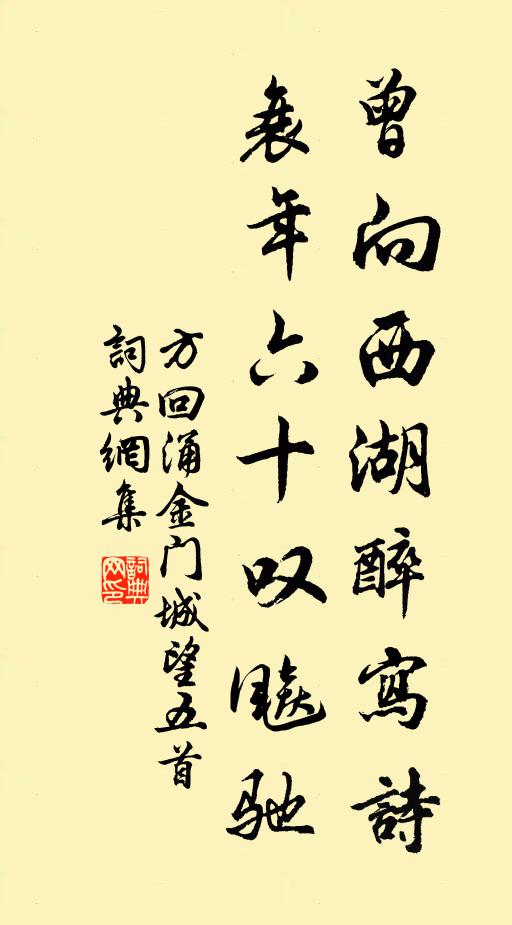 曾向西湖醉寫詩
衰年六十叹飈馳
方回涌金门城望五首
詞典網集
詞典网印